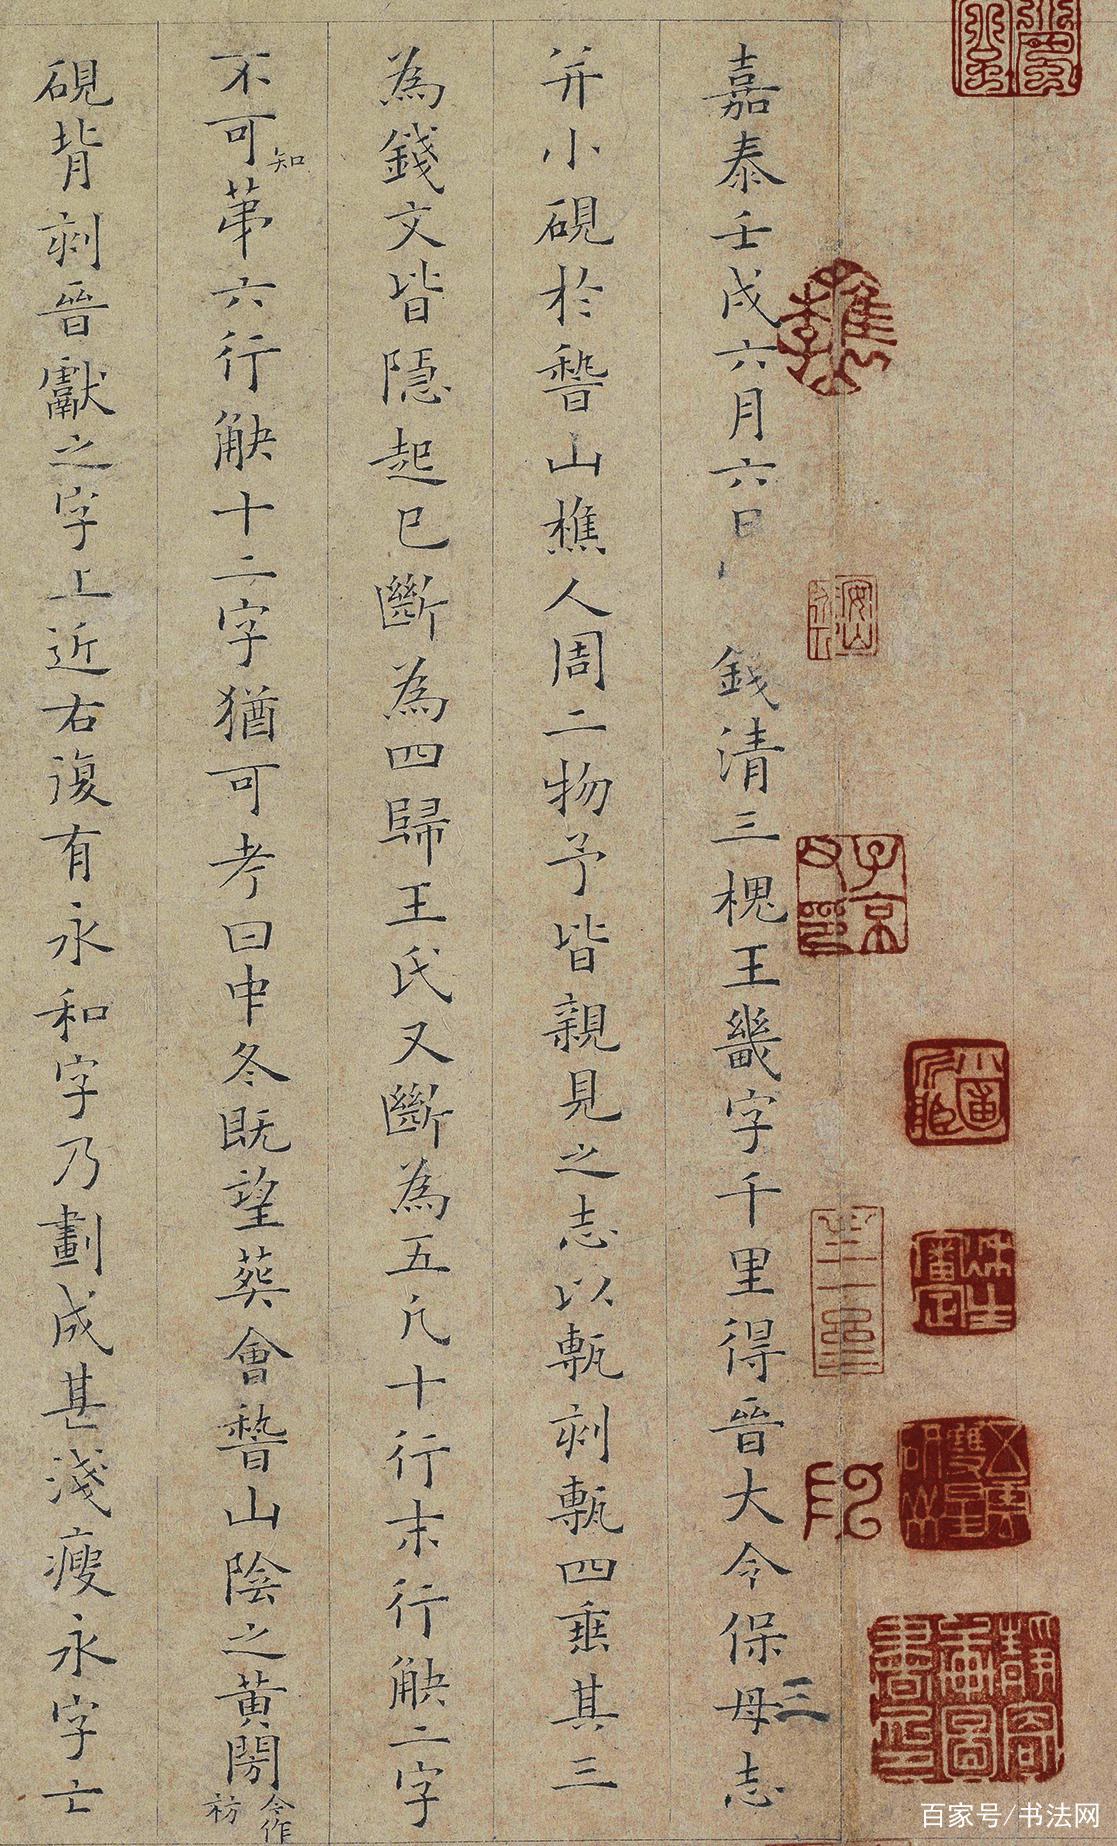 嘉泰壬戌六月六日錢清三槐王畿字千里得晉大令保母志
三
并小硯於嵇山樵人周二物予皆親見之志以甎刻甎四垂其三
為錢文皆隱起已斷為四歸王氏又斷為五凡十行末行缺二字
不可知苐六行缺十二字猶可考曰中冬既望葬會嵇山陰之黃閍
今作
祊
硯背刻晉獻之字上近右復有永和字乃劃成甚淺瘦永字亡
子京
父印
百家号/书法网